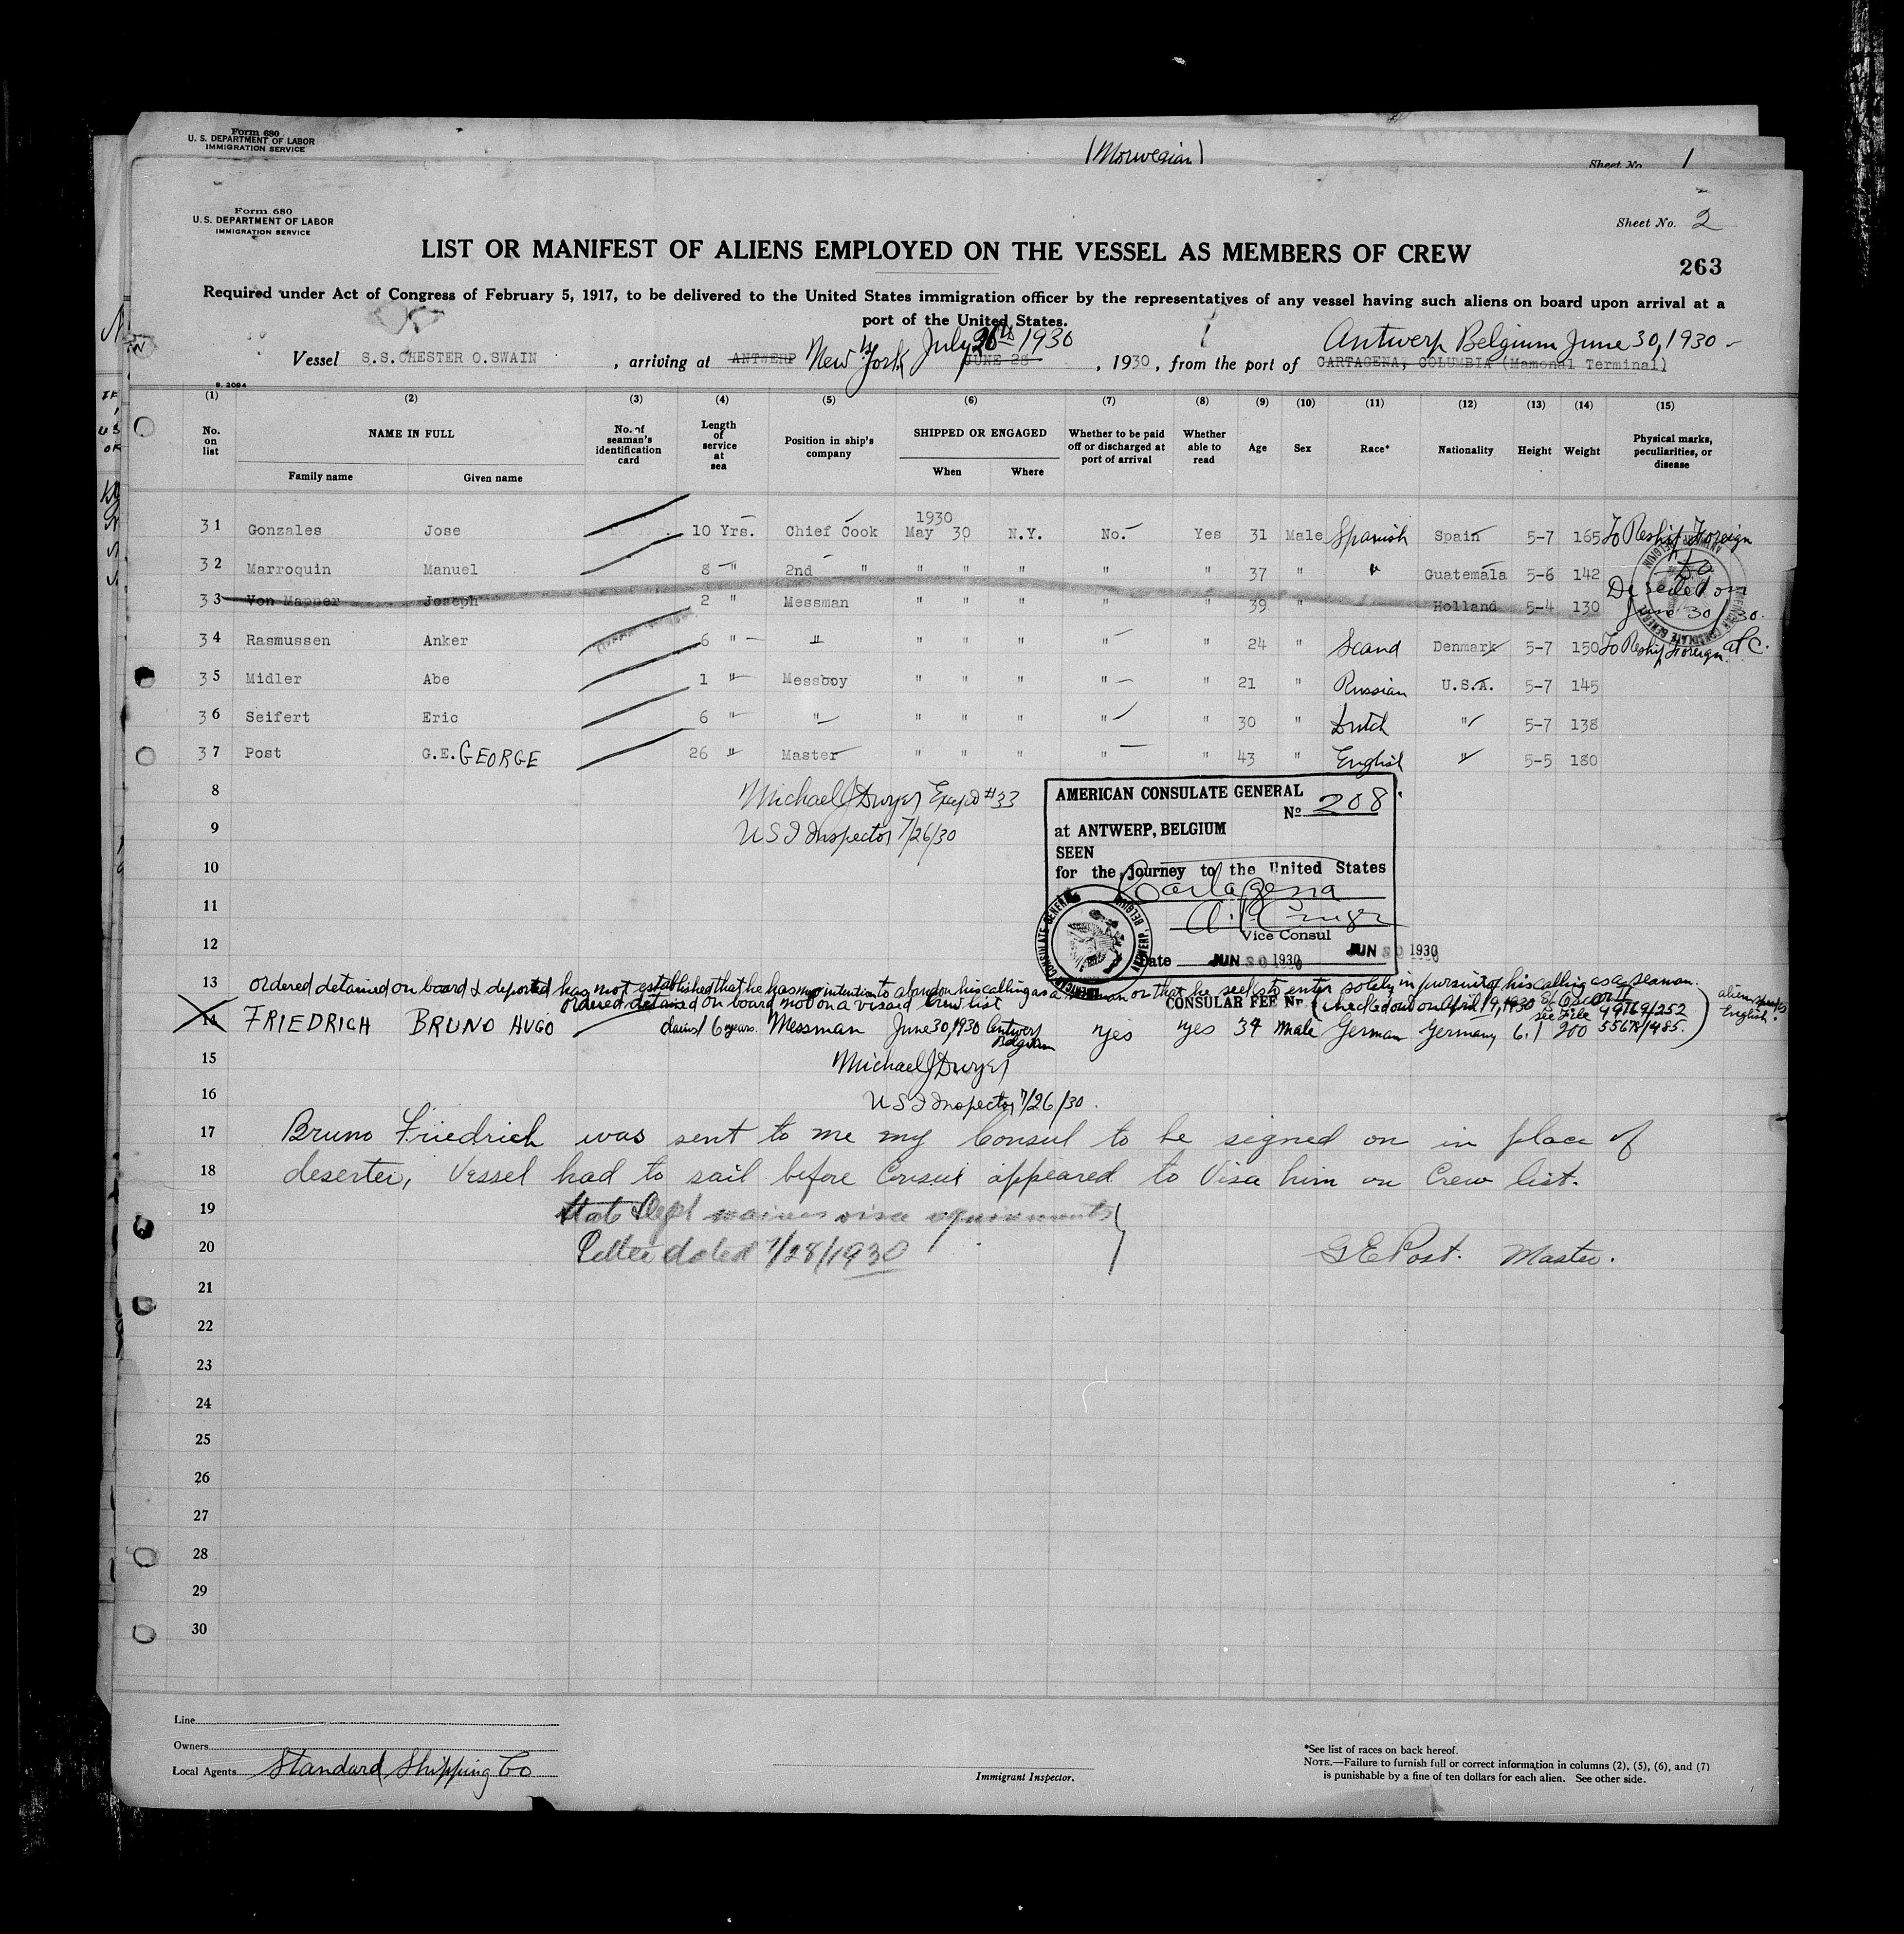 Form 680
U. S. DEPARTMENT OF LABOR
IMMIGRATION SERVICE
(Norwegian)
Sheet No. 1
Form 680
U. S. DEPARTMENT OF LABOR
IMMIGRATION SERVICE
Sheet No. 2
LIST OR MANIFEST OF ALIENS EMPLOYED ON THE VESSEL AS MEMBERS OF CREW
263
Required under Act of Congress of February 5, 1917, to be delivered to the United States immigration officer by the representatives of any vessel having such aliens on board upon arrival at a
port of the United States.
Vessel S.S.CHESTER O.SWAIN , arriving at ANTWERP New York July 26th 1930 JUNE 28 , 1930, from the port of Antwerp Belgium June 30, 1930 - CARTAGENA, COLUMBIA (Mamonal Terminal)
(1) (2) (3) (4) (5) (6) (7) (8) (9) (10) (11) (12) (13) (14) (15)
No. on list NAME IN FULL Family name Given name No. of seaman's identification card Length of service at sea Position in ship's company SHIPPED OR ENGAGED When Where Whether to be paid off or discharged at port of arrival Whether able to read Age Sex Race* Nationality Height Weight Physical marks, peculiarities, or disease
31 Gonzales Jose 10 Yrs. Chief Cook 1930 May 30 N.Y. No. Yes 31 Male Spanish Spain 5-7 165 To Reship Foreign
32 Marroquin Manuel 8 " 2nd " " " " " " 37 " " Guatemala 5-6 142 do
33 Von Mapper Joseph 2 " Messman " " " " " 39 " Holland 5-4 130 Deserted on June 30/30.
34 Rasmussen Anker 6 " " " " " " " 24 " Scand Denmark 5-7 150 To Reship Foreign
35 Midler Abe 1 " Messboy " " " " " 21 " Russian U.S.A. 5-7 145
36 Seifert Eric 6 " " " " " " " 30 " Dutch " 5-7 138
37 Post G.E. GEORGE 26 " Master " " " " " 43 " English " 5-5 180
8 Michael J Dwyer Except #33
9 U S I Inspector 7/26/30
10
11
12
AMERICAN CONSULATE GENERAL
No 208
at ANTWERP, BELGIUM
SEEN
for the journey to the United States
Cartagena
Vice Consul
Date JUN 30 1930 JUN 30 1930
CONSULAR FEE Nr.
13 Ordered detained on board & deported has not established that he has no intention to abandon his calling as a seaman or that he seeks to enter solely in pursuit of his calling as a seaman.
Ordered detained on board not on a visaed crew list
(checked out on April 19, 1930 see File 99769/252 55678/485.)
14 FRIEDRICH BRUNO HUGO claims 6 years. Messman June 30, 1930 Antwerp Belgium yes yes 34 male German Germany 6.1 200
alien speaks English.
15 Michael J Dwyer
16 U S I Inspector 7/26/30.
17 Bruno Friedrich was sent to me my Consul to be signed on in place of
18 deserter, Vessel had to sail before Consul appeared to Visa him on Crew list.
19 State Dept waives visa requirements
20 Letter dated 7/28/1930 G E Post. Master.
21
22
23
24
25
26
27
28
29
30
Line
Owners
Local Agents Standard Shipping Co
Immigrant Inspector.
*See list of races on back hereof.
NOTE.—Failure to furnish full or correct information in columns (2), (5), (6), and (7)
is punishable by a fine of ten dollars for each alien. See other side.